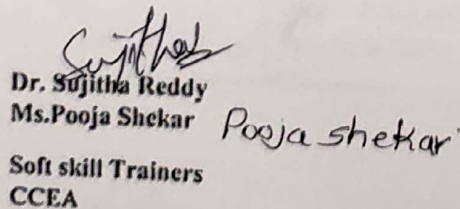 Sujitha
Dr. Sujitha Reddy
Ms.Pooja Shekar Pooja shekar
Soft skill Trainers
CCEA